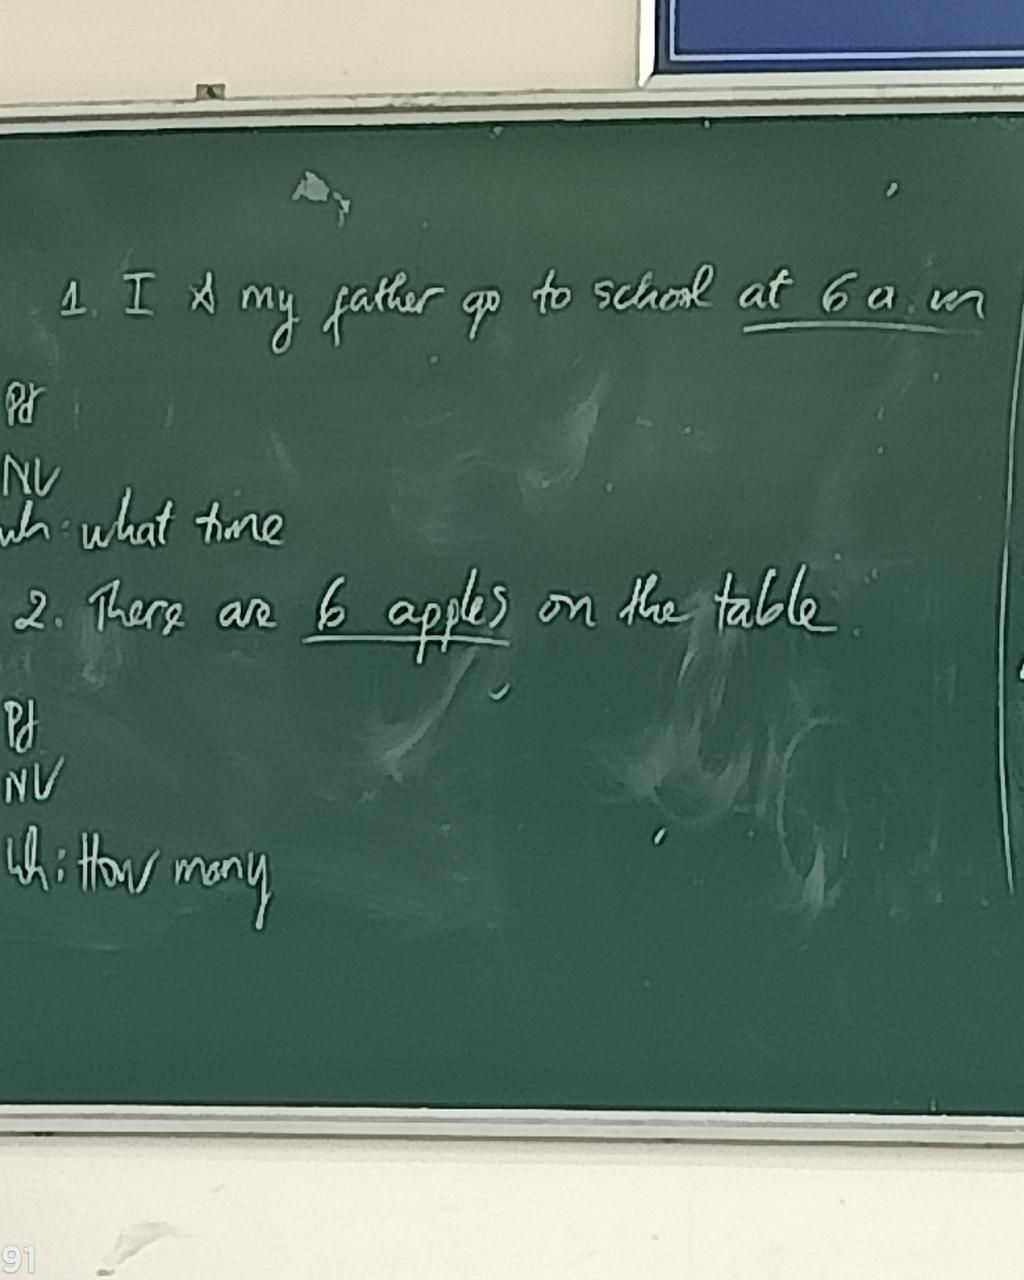 1. I & my father go to school at 6 a.m
Pd
NV
wh: what time
2. There are 6 apples on the table.
Pd
NV
Wh: How many
91